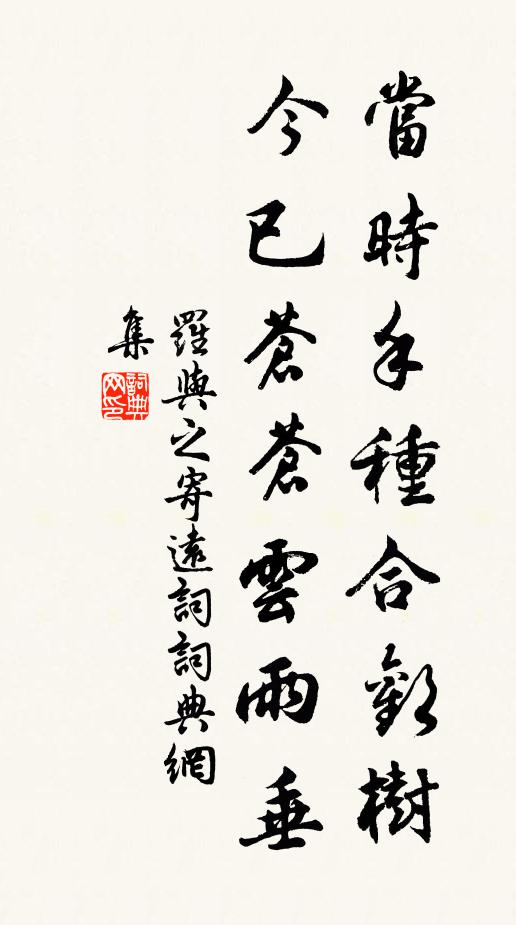 當時手種合歡樹
今已蒼蒼雲雨垂
羅與之寄遠詞詞典網
集
詞典
网印